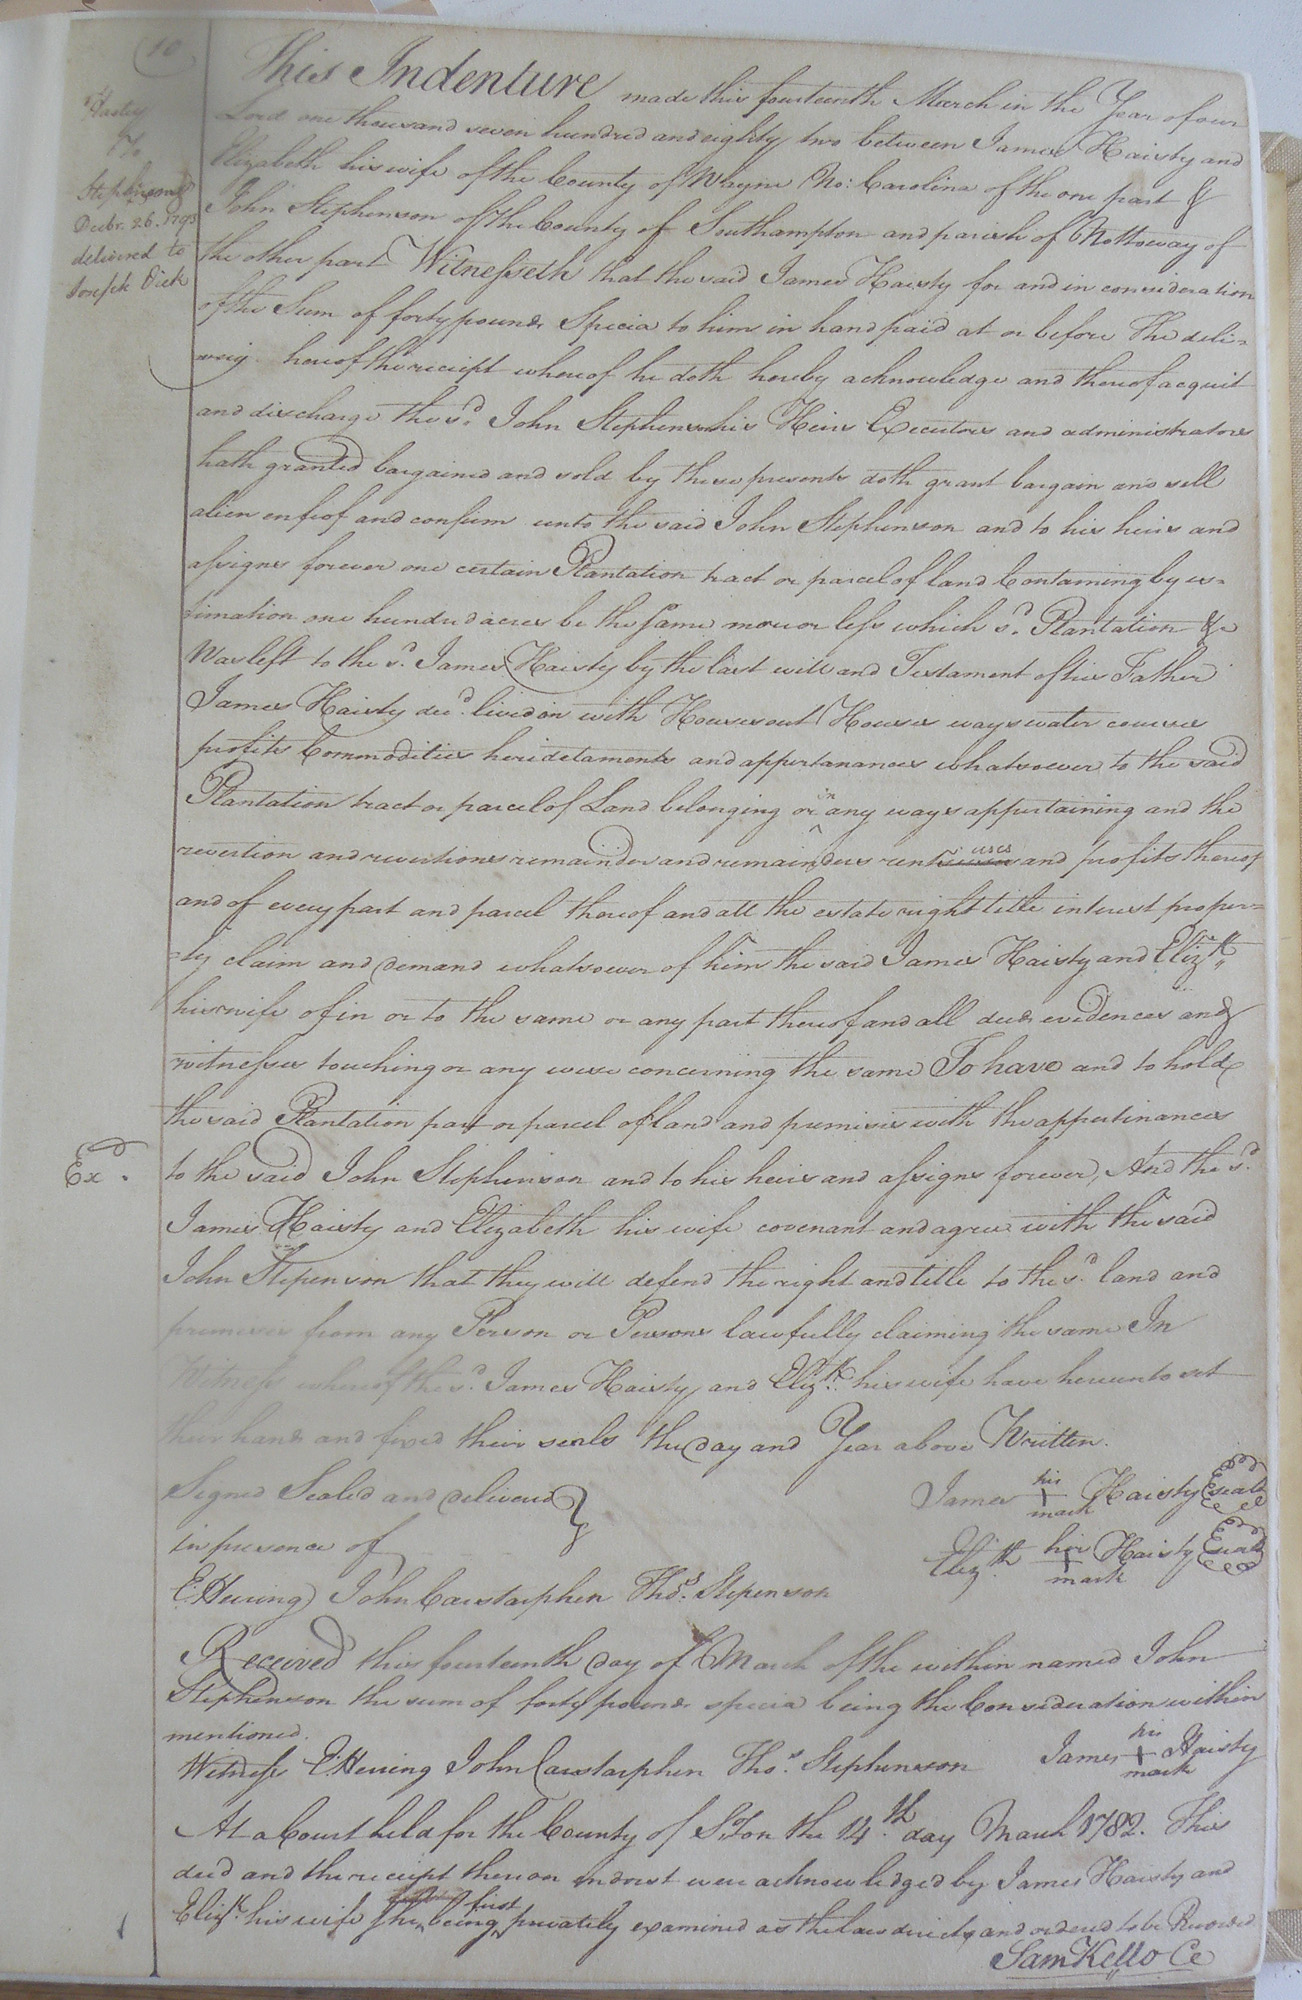 10
Hasty
To
Stephenson
Decbr. 26. 1793
delivered to
Joseph Dick
This Indenture made this fourteenth March in the Year of our
Lord one thousand seven hundred and eighty two between James Haisty and
Elizabeth his wife of the County of Wayne No: Carolina of the one part &
John Stephenson of the County of Southampton and parish of Nottoway of
the other part Witnesseth that the said James Haisty for and in consideration
of the Sum of forty pounds Specia to him in hand paid at or before the deli=
hereof the reciept whereof he doth hereby acknowledge and thereof acquit
and discharge the sd. John Stephenson his Heirs Executors and administrators
hath granted bargained and sold by these presents doth grant bargain and sell
alien enfeof and confirm unto the said John Stephenson and to his heirs and
assigns forever one certain Plantation tract or parcel of land Containing by es=
timation one hundred acres be the same more or less which sd. Plantation &c
Was left to the sd. James Haisty by the last will and Testament of his Father
James Haisty decd. lived on with Houses out Houses ways water courses
profits Commodities heridetaments and appertanances whatsoever to the said
Plantation tract or parcel of Land belonging or in any ways appertaining and the
revertion and revertions remainder and remainders rents uses and profits thereof
and of every part and parcel thereof and all the estate right title interest proper=
=ty claim and demand whatsoever of him the said James Haisty and Elizth.
his wife of in or to the same or any part thereof and all deeds evidences and
witnesses touching or any wise concerning the same To have and to hold
the said Plantation part or parcel of land and premises with the appertinances
Exd.
to the said John Stephenson and to his heirs and assigns forever, And the sd.
James Haisty and Elizabeth his wife covenant and agree with the said
John Stepenson that they will defend the right and title to the sd. land and
premises from any Person or Persons lawfully claiming the same In
Witness whereof the sd. James Haisty and Elizth. his wife have hereunto set
their hands and fixed their seals the day and Year above Written.
Signed Sealed and delivered James his + mark Haisty Seal
in presence of Elizth. her + mark Haisty Seal
E. Herring John Carstarphen Thos. Stepenson
Received this fourteenth day of March of the within named John
Stephenson the sum of forty pounds specia being the Consideration within
mentioned. James his + mark Haisty
Witness E. Herring John Carstarphen Thos. Stephenson
At a Court held for the County of S.Ton the 14.th day March 1782. This
deed and the receipt thereon indorst were acknowledged by James Haisty and
Elizth. his wife she being first privately examined as the law directs and ordered to be Recorded
Sam Kello Cc